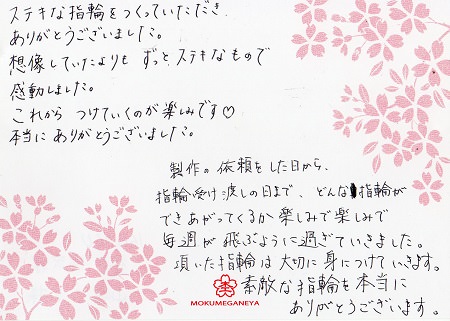 ステキな指輪をつくっていただき
ありがとうございました。
想像していたよりも ずっとステキなもので
感動しました。
これから つけていくのが楽しみです♡
本当に ありがとうございました。
製作の依頼をした日から、
指輪受け渡しの日まで、どんな指輪が
できあがってくるか楽しみで楽しみで
毎週が飛ぶように過ぎていきました。
頂いた指輪は大切に身につけていきます。
素敵な指輪を本当に
ありがとうございます。
MOKUMEGANEYA